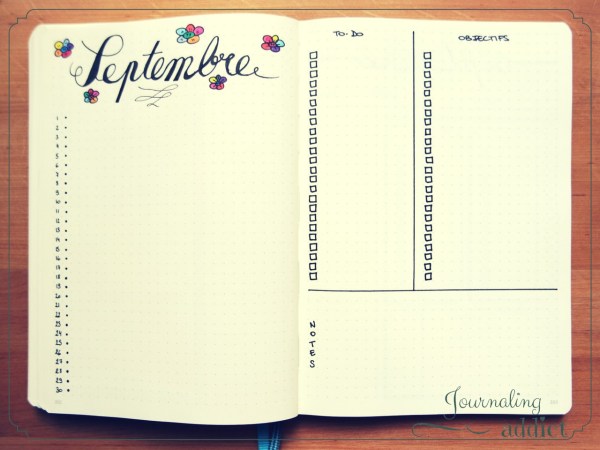 Septembre
1
2
3
4
5
6
7
8
9
10
11
12
13
14
15
16
17
18
19
20
21
22
23
24
25
26
27
28
29
30
TO-DO
OBJECTIFS
NOTES
Journaling
addict